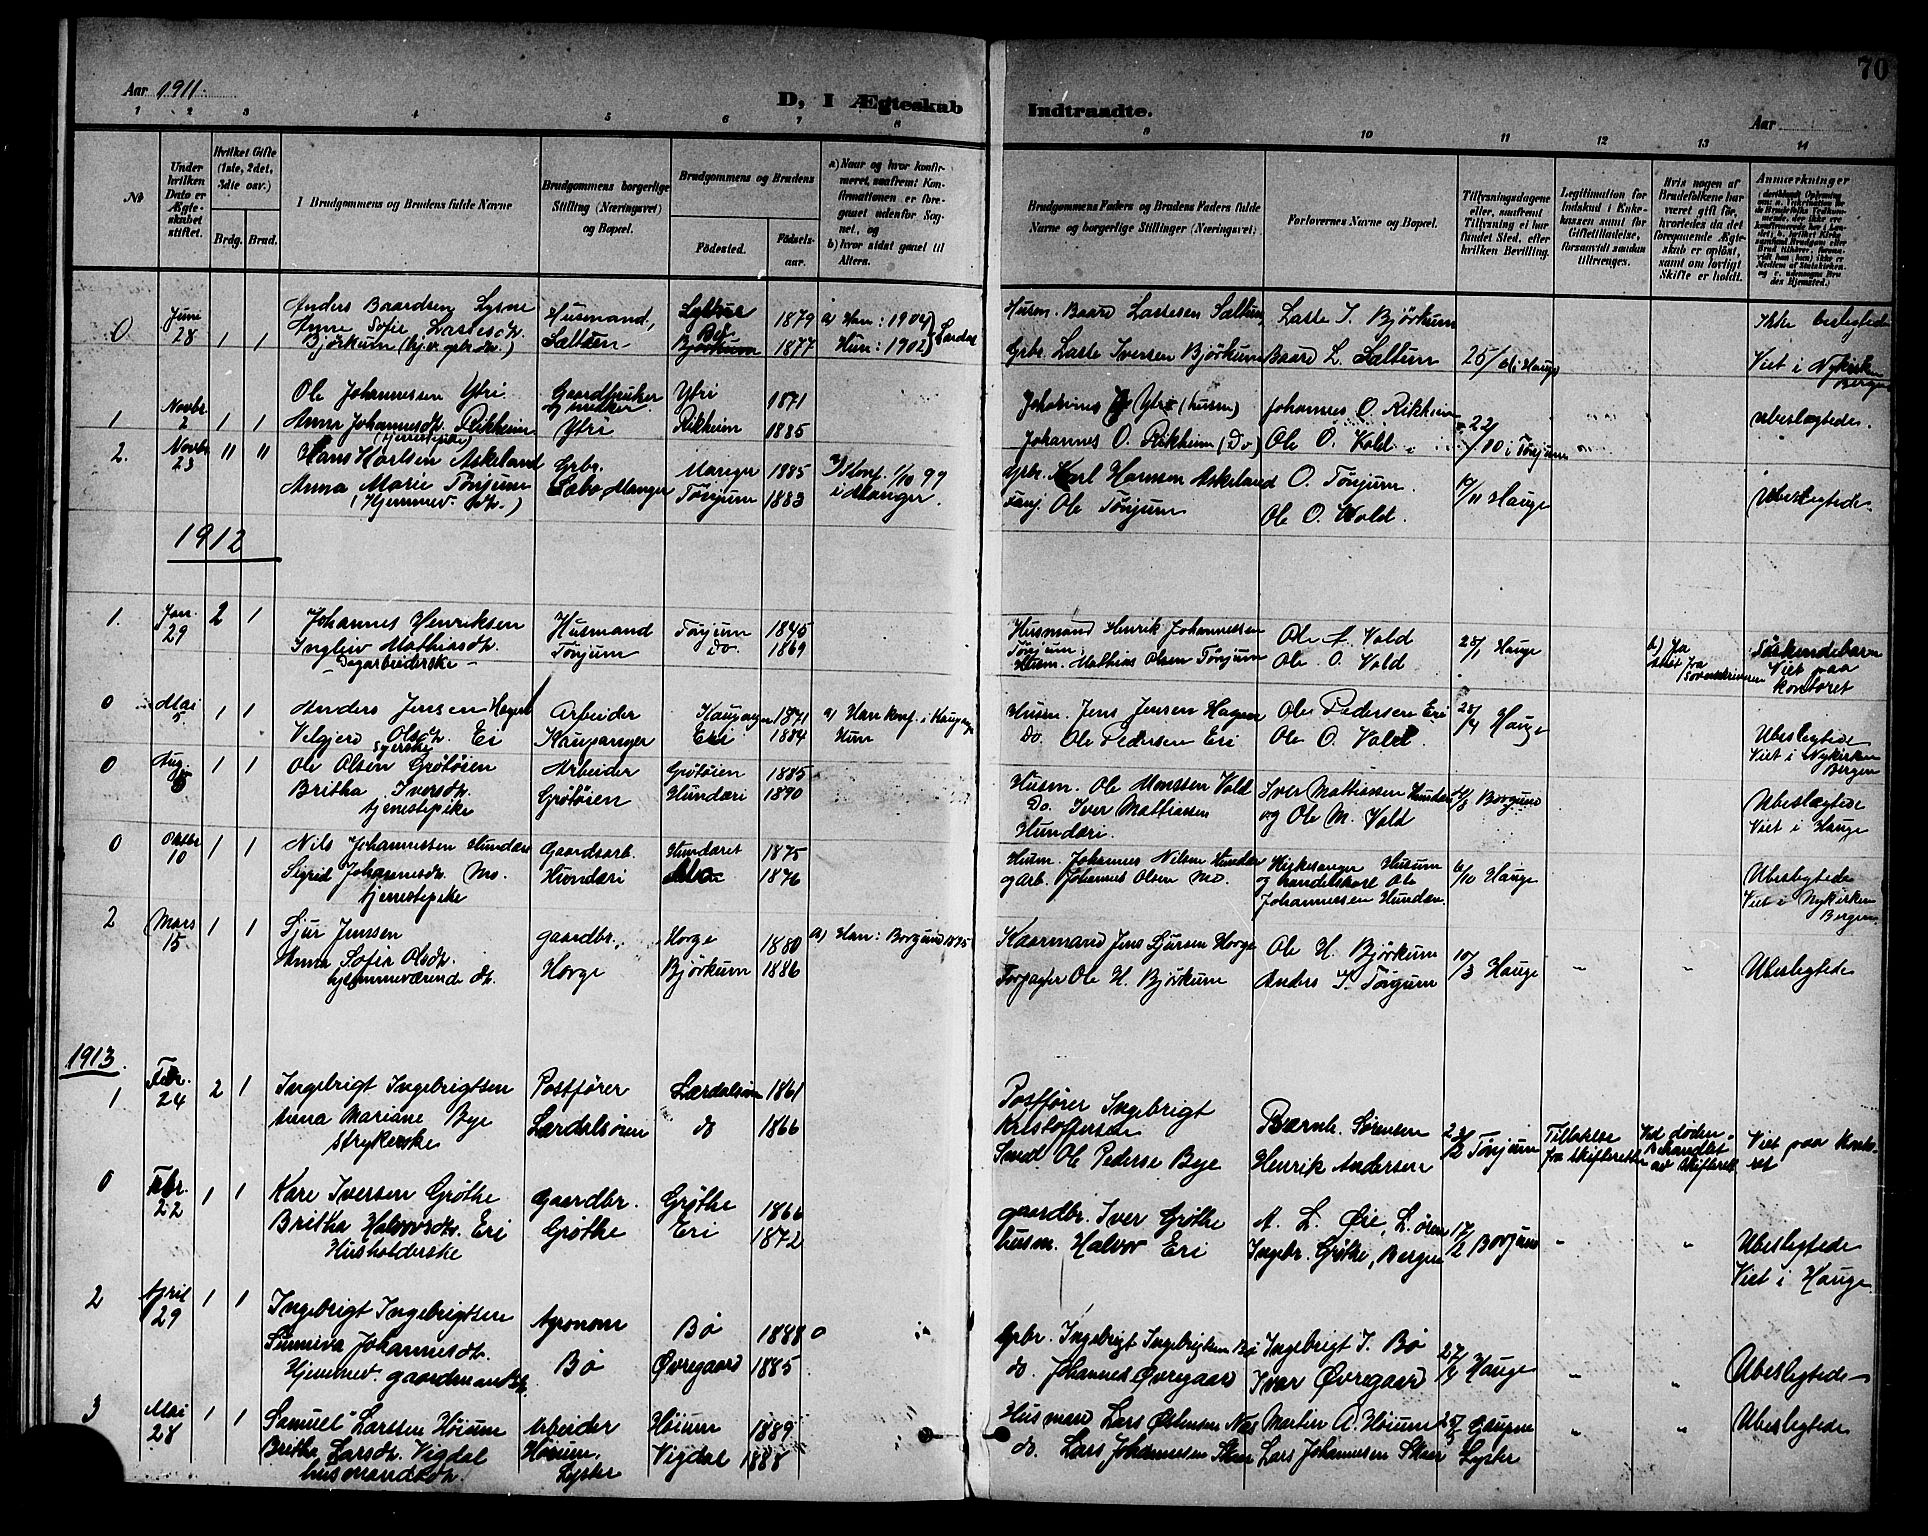 70
Aar 1911.
D, I Ægteskab
Indtraadte.
Aar
1 2 3 4 5 6 7 8 9 10 11 12 13 14
No
Under hvilken Dato er Ægteskabet stiftet.
Hvilket Gifte (1ste, 2det, 3die osv.)
Brdg. Brud.
I Brudgommens og Brudens fulde Navne
Brudgommens borgerlige Stilling (Næringsvei) og Bopæl.
Brudgommens og Brudens
Fødested.
Fødselsaar.
a) Naar og hvor konfirmeret, saafremt Konfirmationen er foregaaet udenfor Sognet, og
b) hvor sidst gaaet til Alters.
Brudgommens Faders og Brudens Faders fulde Navne og borgerlige Stillinger (Næringsvei).
Forlovernes Navne og Bopæl.
Tillysningsdagene eller, saafremt Tillysning ei har fundet Sted, efter hvilken Bevilling.
Legitimation for Indskud i Enkekassen samt for Giftetilladelse, forsaavidt saadan tiltrænges.
Hvis nogen af Brudefolkene har været gift før, hvorledes da det foregaaende Ægteskab er opløst, samt om lovligt Skifte er holdt.
Anmærkninger
0 Juni 28 1 1
Anders Baardsen Lysne
Anne Sofie Lassesdt.
Bjørkum (hjv. gbr. dt.)
Husmand, Sæltun
Bø
Bjørkum
1879
1877
a) Han: 1904
Hun: 1902
Husm. Baard Lassesen Sæltun
Gbr. Lasse Iversen Bjørkum
Lasse I. Bjørkum
Baard L. Sæltun
25/6 i Hauge
Ikke beslegtede
Viet i Nykirken Bergen
1 Novbr 2 1 1
Ole Johannessen Ytri
Anna Johannesdt. Rikheim
(tjenestepike)
Gaardbruker
Ytri
Ytri 1871
Rikheim 1885
Johannes Ytre (husm)
Johannes O. Rikheim (Do)
Johannes O. Rikheim
Ole O. Vold
22/10 i Tønjum
ubeslægtede.
2. Novbr 23 " "
Hans Karlsen Askeland
Anna Marie Tønjum
(Hjemmev. dt.)
Gbr.
Manger
Manger 1885
Tønjum 1883
Konf. 1/10 99
i Manger.
Gbr. Karl Hansen Askeland
Ole Tønjum
O. Tønjum.
Ole O. Vold.
19/11 Hauge
Ubeslegtede.
1912
1. Jan. 29 2 1
Johannes Henriksen
Ingleiv Mathiasdt.
Dagarbeiderske
Husmand
Tønjum
Tønjum 1845
Do. 1869
Husmand Henrik Johannessen
Tønjum
Husm. Mathias Olsen Tønjum
Ole A. Vold
Ole O. Vold
28/1 Hauge
b) Ja
skift fra Sorenskriveren
Søskendebarn
Viet paa
kontoret
0 Mai 5 1 1
Anders Jensen Hagen
Velgjerd Olsdt. Eri
syerske
Arbeider
Kaupanger
Kaupanger 1871
Eri 1884
a) Han konf. i Kaupanger
Hun
Husm. Jens Jensen Hagen
Do. Ole Pedersen Eri
Ole Pedersen Eri
Ole O. Vold.
28/4 Hauge
Ubeslegtede
Viet i Nykirken
Bergen
0 Aug. 1 1
Ole Olsen Grøtøien
Britha Iversdt.
tjenestepike
Arbeider
Grøtøien
Grøtøien 1885
Hundæri 1890
Husm. Ole Monssen Vold
Do. Iver Mattiassen
Hundæri.
Iver Mattiassen Hundæri
og Ole M. Vold
4/8 Borgund
Ubeslægtede
Viet i Hauge
0 Oktbr 10 1 1
Nils Johannessen Hundæri
Sigrid Johannesdt. Mo.
tjenestepike
Gaardsarb.
Hundæri
Hundæri 1875
Mo 1876
Husm. Johannes Nilsen Hundæri
og Arb. Johannes Olsen Mo.
Kirkesanger Husum
og handelskorl Ole
Johannessen Hundæri.
6/10 Hauge
Ubeslegtede
Viet i Nykirken
Bergen.
2 Mars 15 1 1
Sjur Jenssen
Anna Sofie Olsdt.
hjemmeværende dt.
gaardbr.,
Horge
Horge 1880
Bjørkum 1886
a) Han: Borgund 1895
Kaarmand Jens Sjursen Horge
Forpagter Ole H. Bjørkum
Ole H. Bjørkum
Anders I. Tønjum
10/3 Hauge
" "
Ubeslegtede
1913.
1 Febr. 24 2 1
Ingebrigt Ingebrigtsen
Anna Mariane Bye
Strykerske
Postfører
Lærdalsøren
Lærdalsøren 1861
do 1866
Postfører Ingebrigt
Kristoffersen
Smed. Ole Pederse Bye
Bærnh. Sørensen
Henrik Andersen
23/2 Tønjum
Tilladelse
fra skifteretten
Ved døden.
Behandlet
av Skifteret
Viet paa kontoret
0 Febr. 22 1 1
Kare Iversen Grøthe
Britha Halvorsdt. Eri
Husholderske
gaardbr.
Grøthe
Grøthe 1866
Eri 1872
gaardbr. Iver Grøthe
husm. Halvor Eri
A. L. Øie, L. øren
Ingebr. Grøthe, Bergen
17/2 Borgund
" "
Ubeslegtede
Viet i Hauge
2 April 29 1 1
Ingebrigt Ingebrigtsen
Sunniva Johannesdt.
Hjemmev. gaardmandsdt.
Agronom
Bø
Bø 1888
Øvregaard 1885
Gbr. Ingebrigt Ingebrigtsen Bø
do. Johannes Øvregaard
Ingebrigt I. Bø
Ivar Øvregaard
27/4 Hauge
" "
Ubeslegtede
3 Mai 28 1 1
Samuel Larssen Høium
Britha Larsdt. Vigdal
husmandsdt.
Arbeider
Høium,
Lyster
Høium 1889
Vigdal 1888
Husman Lars Østensen Næs
do. Lars Johannessen Skaar
Martin A. Høium
Lars Johannessen Skaar
25/5 Gaupne
Lyster
" "
Ubeslegtede